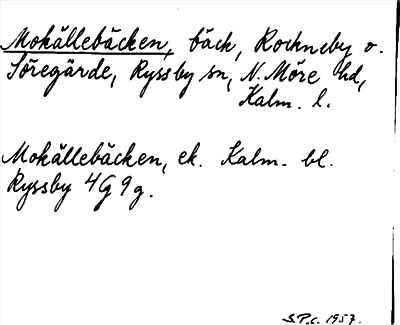 Mokällebäcken, bäck, Rockneby o.
Söregärde, Ryssby sn, N. Möre hd,
Kalm. l.
Mokällebäcken, ek. Kalm. bl.
Ryssby 4G9g.
S.P.c. 1957.